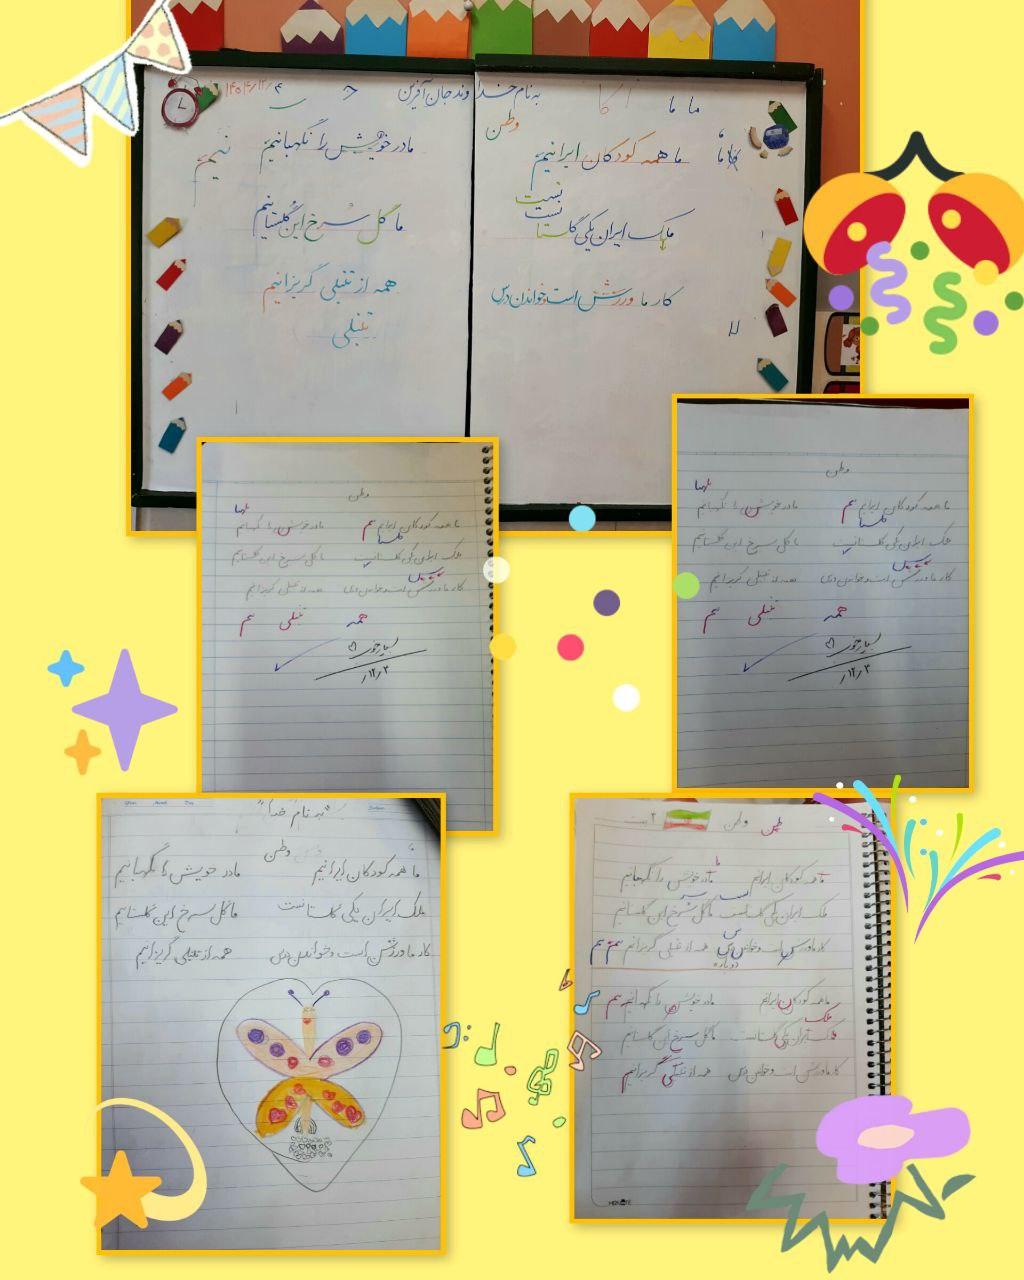 به نام خداوند جان آفرین
۱۴۰۴/۱۲/۴
ما ما
وطن
ما همه کودکان ایرانیم
مادر خویش را نگهبانیم
نیم
نیست
ملک ایران یکی گلستا
ما گل سرخ این گلستانیم
کار ما ورزش است خواندن درس
همه از تنبلی گریزانیم
تنبلی
وطن
ما همه کودکان ایرانیم
مادر خویش را نگهبانیم
ملک ایران یکی گلستانیست
ما گل سرخ این گلستانیم
کار ما ورزش است و خواندن درس
همه از تنبلی گریزانیم
همه تنبلی یم
بسیار خوب
۱۲/۳
وطن
ما همه کودکان ایرانیم
مادر خویش را نگهبانیم
ملک ایران یکی گلستانیست
ما گل سرخ این گلستانیم
کار ما ورزش است و خواندن درس
همه از تنبلی گریزانیم
همه تنبلی یم
بسیار خوب
۱۲/۳
"به نام خدا"
وطن
ما همه کودکان ایرانیم
مادر خویش را نگهبانیم
ملک ایران یکی گلستانست
ما گل سرخ این گلستانیم
کار ما ورزش است و خواندن درس
همه از تنبلی گریزانیم
وطن
ما همه کودکان ایرانیم
مادر خویش را نگهبانیم
ملک ایران یکی گلستانست
ما گل سرخ این گلستانیم
کار ما ورزش است و خواندن درس
همه از تنبلی گریزانیم
دوباره
ما همه کودکان ایرانیم
مادر خویش را نگهبانیم
ملک ایران یکی گلستانست
ما گل سرخ این گلستانیم
کار ما ورزش است و خواندن درس
همه از تنبلی گریزانیم